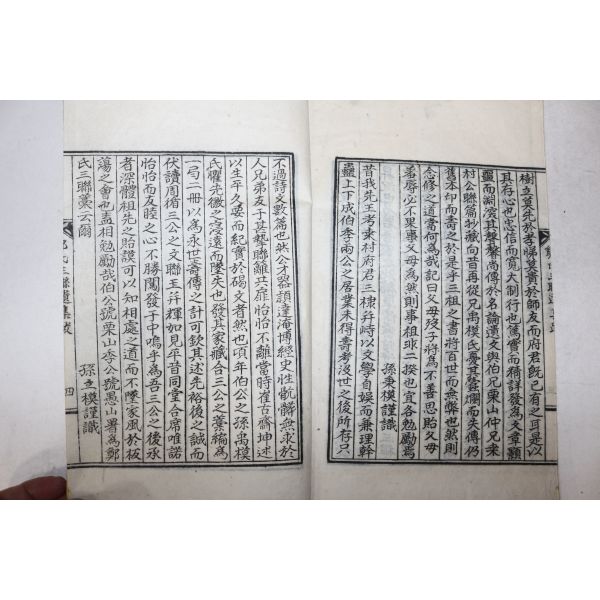 樹立莫先於孝悌莫實於師友而府君旣已有之耳是以
其存心也忠信而寬大制行也篤實而精詳發為文章顯
而涵渟其聲尚傳於名論遺文與伯兄栗山仲兄東
村公聯篇鈔藏向昔再從兄禹模氏憂其蠹爛而失傳仍
舊本印而壽之於是乎三祖之書將百世而無弊也然則
念修之道當何為哉記曰父母歿子將為不善思貽父母
羞辱必不果事父母為然則事祖非二揆也宜各勉勵焉
孫秉模謹識
昔我先王考東村府君三棣幷時以文學自娛而兼理幹
蠱上下成伯季兩公之居業未得壽考沒世之後所存只
不過詩文數篇也然公才器穎達淹博經史性骯髒無求於
人兄弟友于其樂聯離共靡怡怡不離當時崔古齋坤述
以生平久要而紀實於碣文者然也頃年伯公之孫禹模
氏懼先徽之寢遠而墜失也發其家藏合三公之彙編為
一局二冊以為永世壽傳之計可欽其述先裕後之誠而
伏讀周循三公之文聯玉幷輝如見平昔同堂合席唯諾
怡怡而友睦之心不勝闖發于中嗚乎為吾三公之後承
者深體祖先之貽謨可以知相處之道而不墜家風於板
蕩之會也盍相勉勵哉伯公號栗山季公號愚山署為鄭
氏三聯藁云爾
孫立模謹識
四